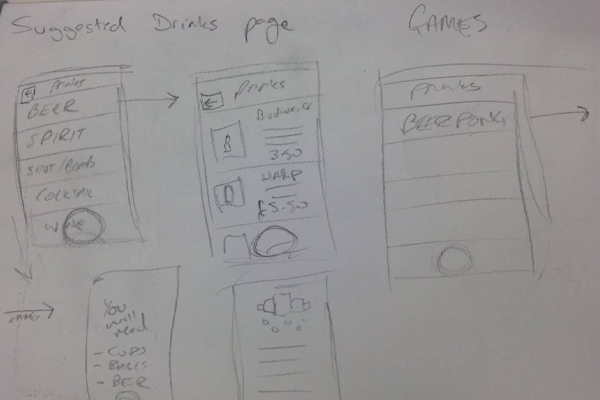 Suggested Drinks page
GAMES
Drinks
BEER
SPIRIT
SHOT/BOMBS
COCKTAIL
WINE
Drinks
Budweiser
B
3.50
£5.50
Drinks
BEER PONG
You
will
need
- CUPS
- BALLS
- BEER